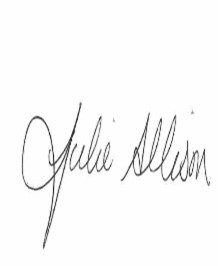 Julie Allison